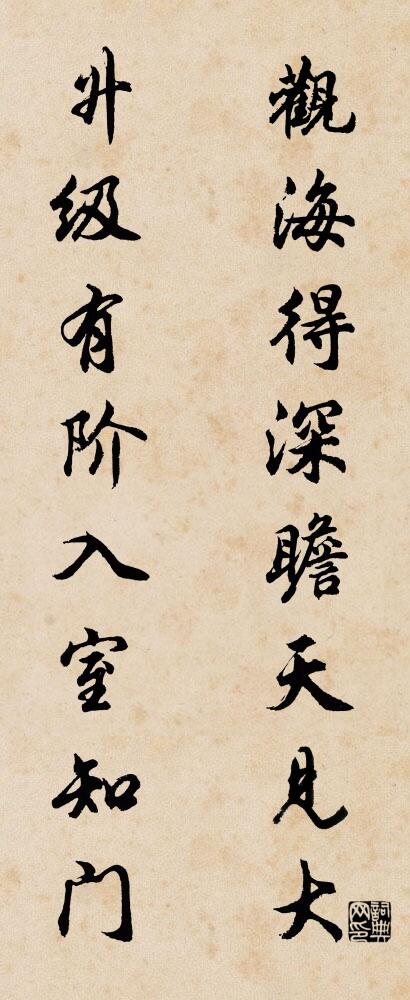 觀海得深瞻天見大
升级有阶入室知门
詞典网印